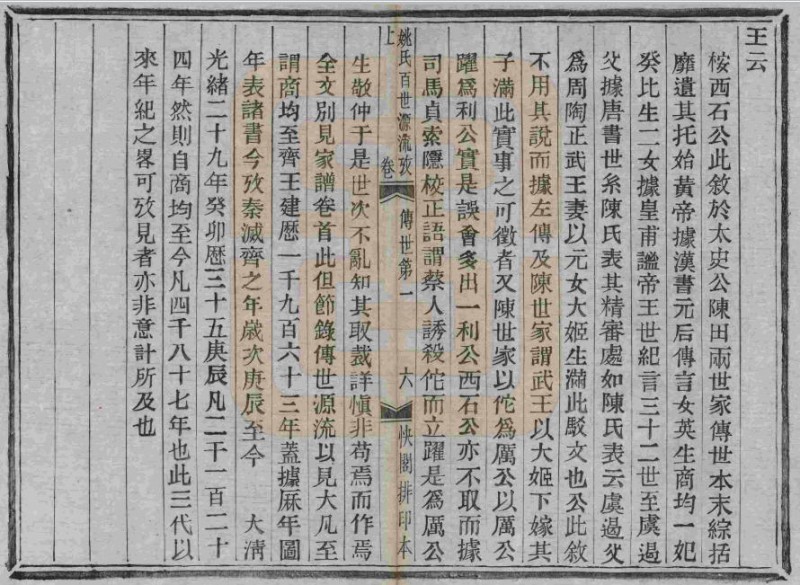 王云
桉西石公此敘於太史公陳田兩世家傳世本末綜括
靡遺其托始黃帝據漢書元后傳言女英生商均一妃
癸比生二女據皇甫謐帝王世紀言三十二世至虞遏
父據唐書世系陳氏表其精審處如陳氏表云虞遏父
為周陶正武王妻以元女大姬生滿此駁文也公此敘
不用其說而據左傳及陳世家謂武王以大姬下嫁其
子滿此實事之可徵者又陳世家以佗為厲公以厲公
躍為利公實是誤會多出一利公西石公亦不取而據
司馬貞索隱校正語謂蔡人誘殺佗而立躍是為厲公
姚氏百世源流攷 卷上 傳世第一 六 快閣排印本
生敬仲于是世次不亂知其取裁詳慎非苟焉而作焉
全文別見家譜卷首此但節錄傳世源流以見大凡至
謂商均至齊王建歷一千九百六十三年蓋據厤年圖
年表諸書今攷秦滅齊之年歲次庚辰至今 大淸
光緒二十九年癸卯歷三十五庚辰凡二千一百二十
四年然則自商均至今凡四千八十七年也此三代以
來年紀之畧可攷見者亦非意計所及也